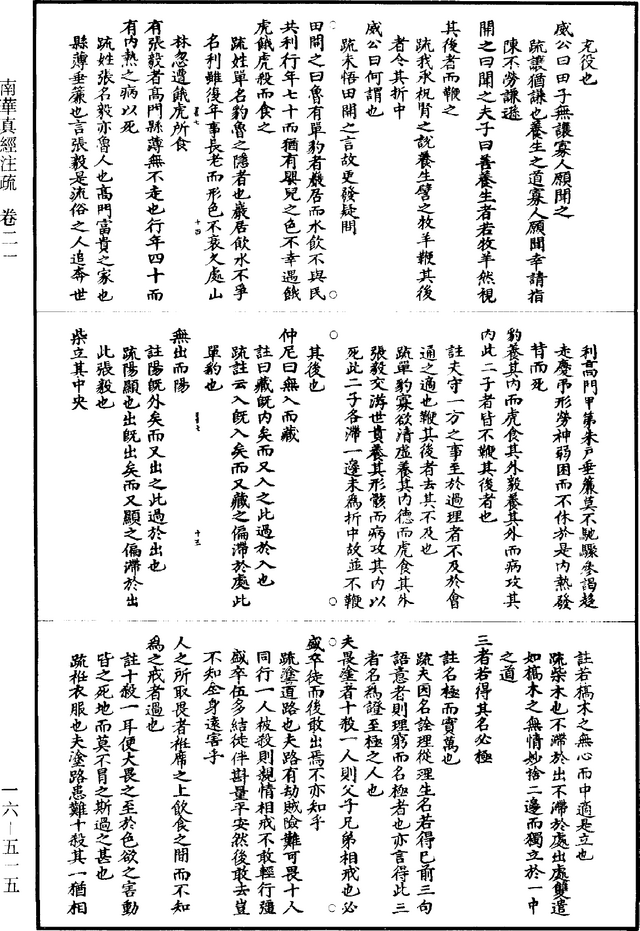 充役也
威公曰田子無讓寡人願聞之
疏讓猶謙也養生之道寡人願聞幸請指
陳不勞謙遜
開之曰聞之夫子曰善養生者若牧羊然視
其後者而鞭之
疏我承祝腎之說養生譬之牧羊鞭其後
者令其折中
威公曰何謂也
疏未悟田開之言故更發疑問
田開之曰魯有單豹者巖居而水飲不與民
共利行年七十而猶有嬰兒之色不幸遇餓
虎餓虎殺而食之
疏姓單名豹魯之隱者也巖居飲水不爭
名利雖復年事長老而形色不衰久處山
林忽遭餓虎所食
有張毅者高門縣薄無不走也行年四十而
有內熱之病以死
疏姓張名毅亦魯人也高門富貴之家也
縣薄垂簾也言張毅是流俗之人追奔世
利高門甲第朱戶垂簾莫不馳驟參謁趨
走慶弔形勞神弱困而不休於是內熱發
背而死
豹養其內而虎食其外毅養其外而病攻其
內此二子者皆不鞭其後者也
註夫守一方之事至於過理者不及於會
通之適也鞭其後者去其不及也
疏單豹寡欲清虛養其內德而虎食其外
張毅交游世貴養其形骸而病攻其內以
死此二子各滯一邊未為折中故並不鞭
其後也
仲尼曰無入而藏
註曰藏既內矣而又入之此過於入也
疏註云入既入矣而又藏之偏滯於處此
單豹也
無出而陽
註陽既外矣而又出之此過於出也
疏陽顯也出既出矣而又顯之偏滯於出
此張毅也
柴立其中央
註若槁木之無心而中適是立也
疏柴木也不滯於出不滯於處出處雙遣
如槁木之無情妙捨二邊而獨立於一中
之道
三者若得其名必極
註名極而實當也
疏夫因名詮理從理生名若得已前三句
語意者則理窮而名極者也亦言得此三
者名為證至極之人也
夫畏塗者十殺一人則父子兄弟相戒也必
盛卒徒而後敢出焉不亦知乎
疏塗道路也夫路有劫賊險難可畏十人
同行一人被殺則親情相戒不敢輕行彊
盛卒伍多結徒伴斟量平安然後敢去豈
不知全身遠害乎
人之所取畏者袵席之上飲食之間而不知
為之戒者過也
註十殺一耳便大畏之至於色欲之害動
皆之死地而莫不冒之斯過之甚也
疏袵衣服也夫塗路患難十殺其一猶相
南華真經注疏 卷二一
一六—五一五